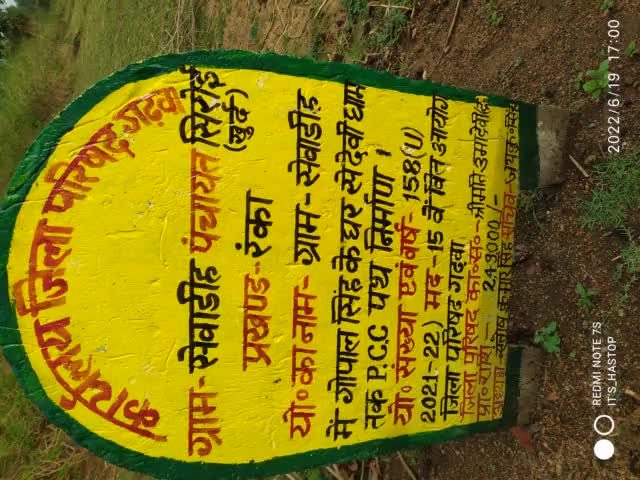 कार्यालय जिला परिषद गढ़वा
ग्राम- सेवाडीह पंचायत सिरोई
(खुर्द)
प्रखण्ड- रंका
यो० का नाम- ग्राम- सेवाडीह
में गोपाल सिंह के घर से देवी धाम
तक P.C.C पथ निर्माण।
यो० संख्या एवं वर्ष- 158(U)
2021-22) मद- 15 वें वित आयोग
जिला परिषद गढ़वा
जिला परिषद का०स०- श्रीमति उमादेवी
प्रा० राशी - 249000/-
अध्यक्ष - कुमार सिंह सचिव -
2022/6/19 17:00
REDMI NOTE 7S
IT'S_HASTOP